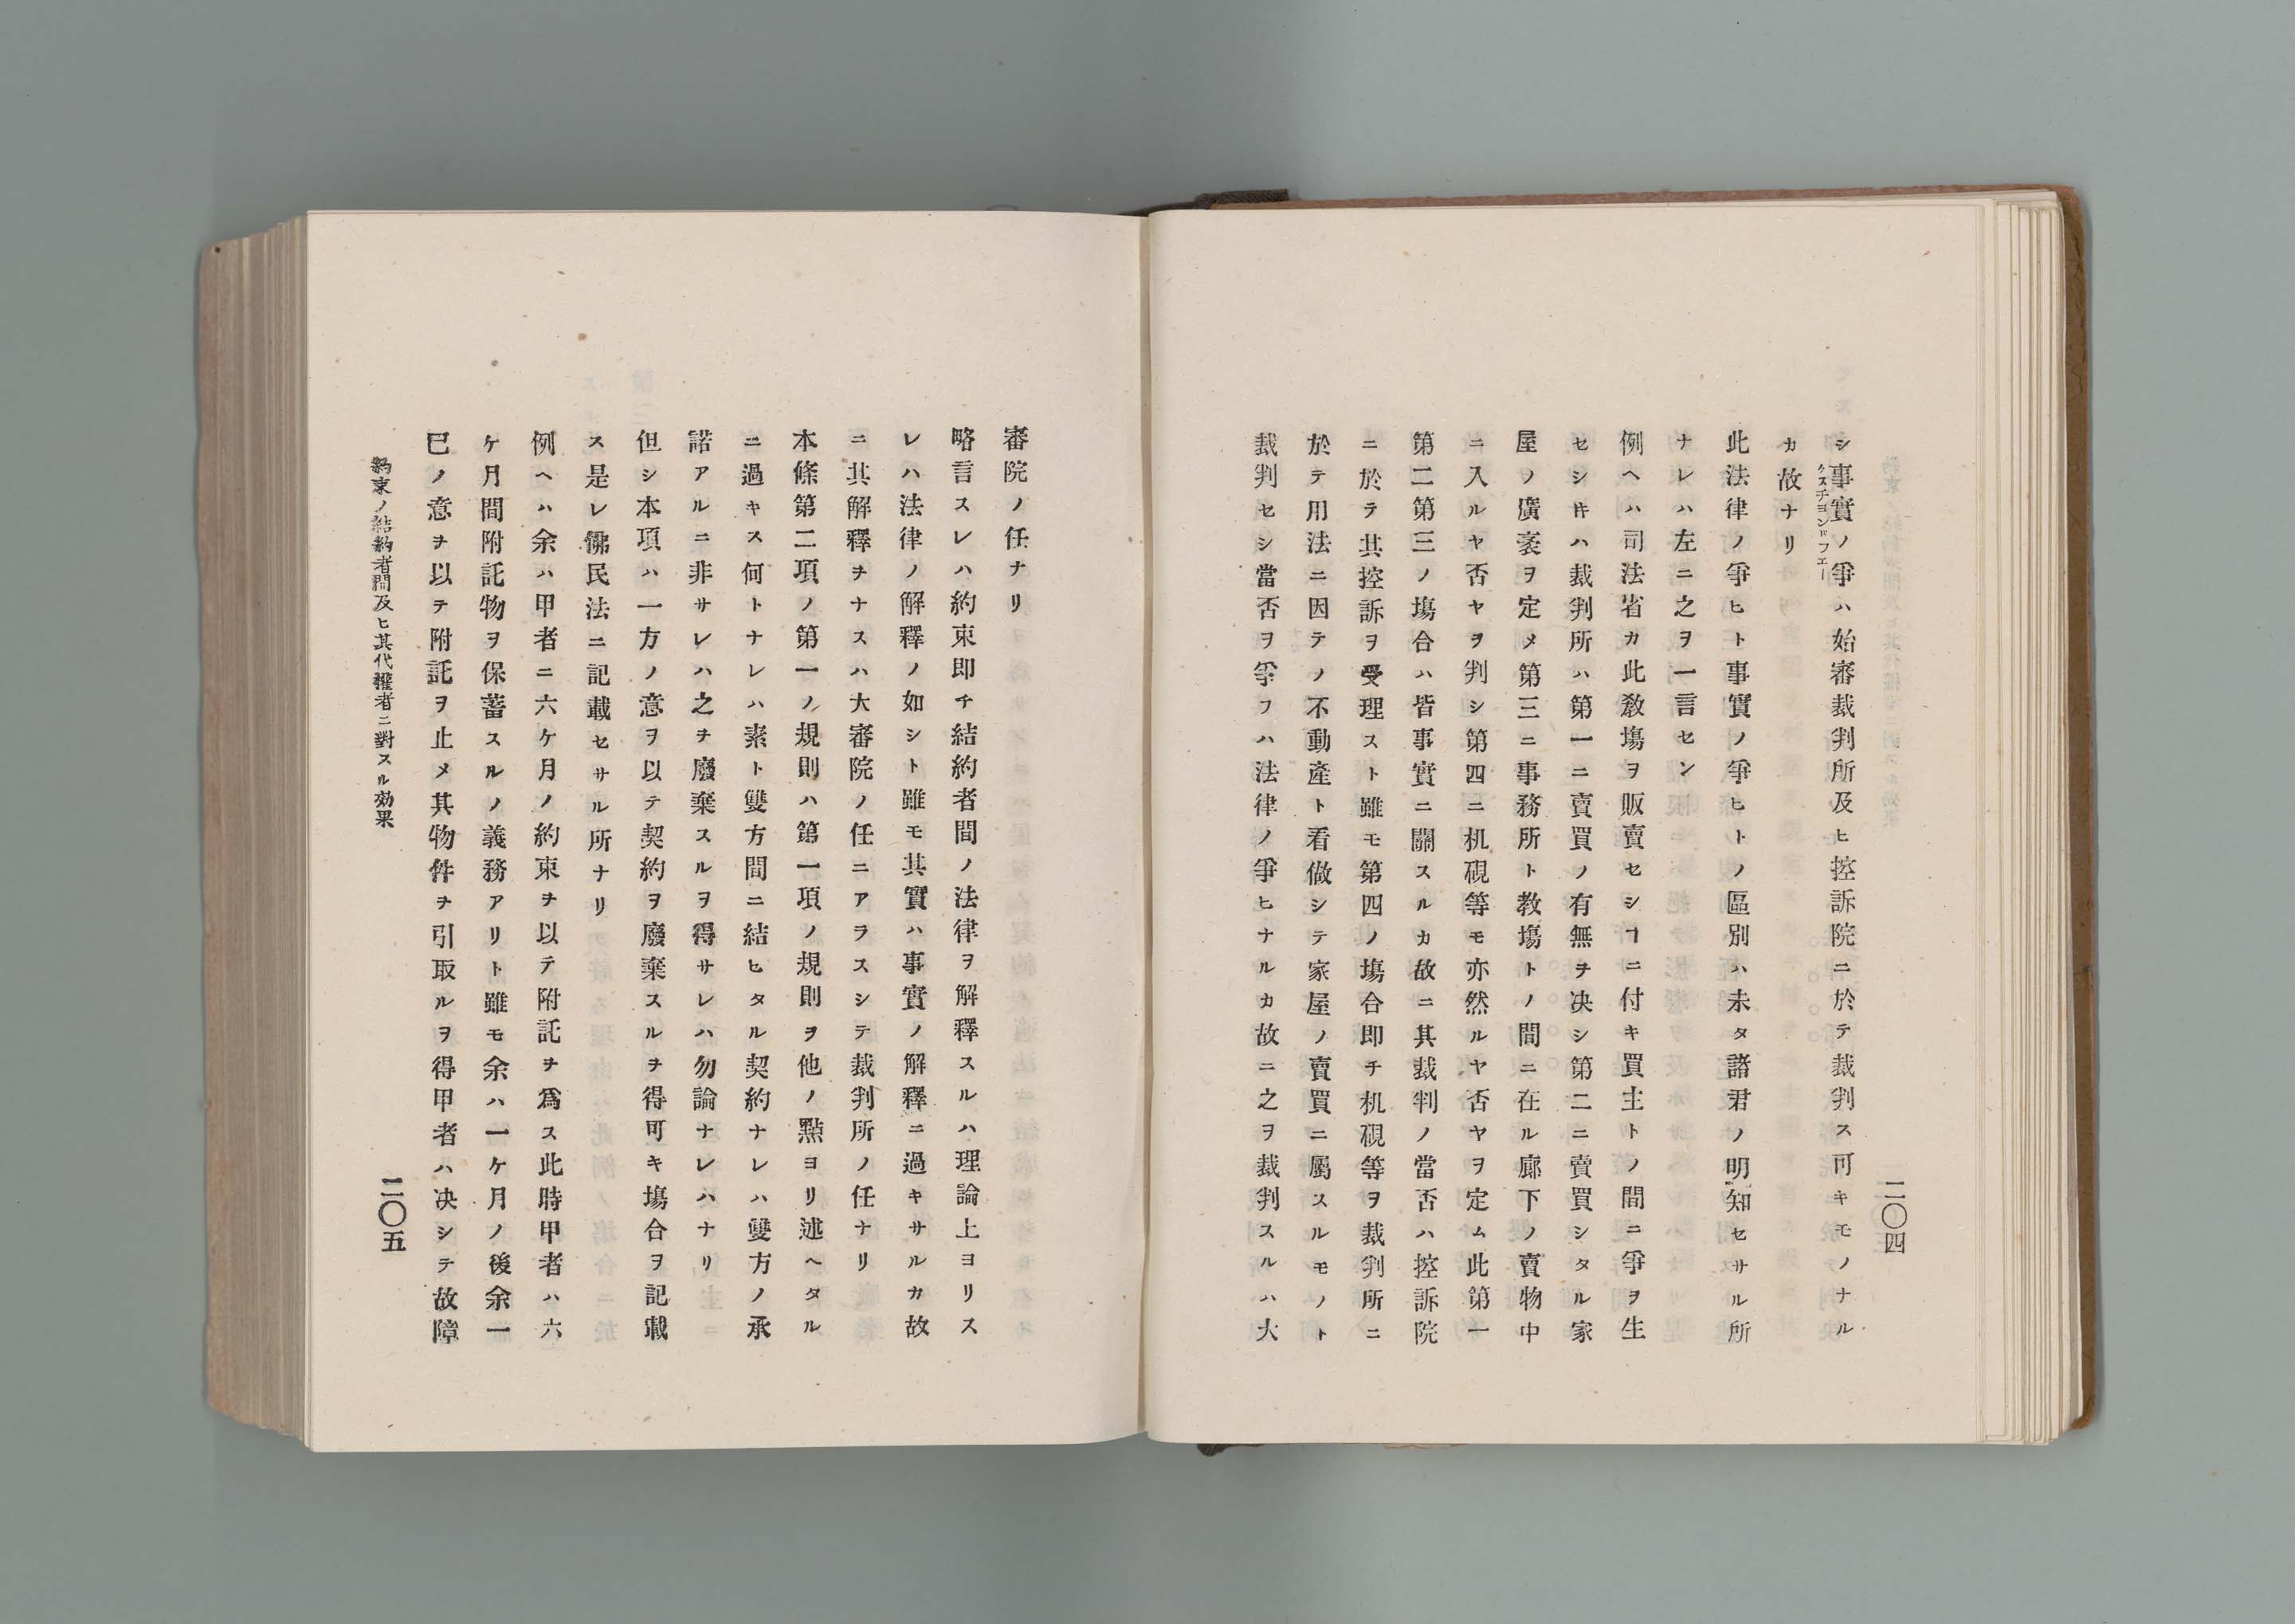 シ事實ノ爭ハ始審裁判所及ヒ控訴院ニ於テ裁判ス可キモノナル
クスチヨンドフエー
カ故ナリ
此法律ノ爭ヒト事實ノ爭ヒトノ區別ハ未タ諸君ノ明知セサル所
ナレハ左ニ之ヲ一言セン
例ヘハ司法省カ此敎塲ヲ販賣セシヿニ付キ買主トノ間ニ爭ヲ生
セシキハ裁判所ハ第一ニ賣買ノ有無ヲ决シ第二ニ賣買シタル家
屋ノ廣袤ヲ定メ第三ニ事務所ト敎塲トノ間ニ在ル廊下ノ賣物中
ニ入ルヤ否ヤヲ判シ第四ニ机硯等モ亦然ルヤ否ヤヲ定ム此第一
第二第三ノ塲合ハ皆事實ニ關スルカ故ニ其裁判ノ當否ハ控訴院
ニ於テ其控訴ヲ受理スト雖モ第四ノ塲合即チ机硯等ヲ裁判所ニ
於テ用法ニ因テノ不動產ト看做シテ家屋ノ賣買ニ屬スルモノト
裁判セシ當否ヲ爭フハ法律ノ爭ヒナルカ故ニ之ヲ裁判スルハ大
二〇四
審院ノ任ナリ
略言スレハ約束即チ結約者間ノ法律ヲ解釋スルハ理論上ヨリス
レハ法律ノ解釋ノ如シト雖モ其實ハ事實ノ解釋ニ過キサルカ故
ニ其解釋ヲナスハ大審院ノ任ニアラスシテ裁判所ノ任ナリ
本條第二項ノ第一ノ規則ハ第一項ノ規則ヲ他ノ點ヨリ述ヘタル
ニ過キス何トナレハ素ト雙方間ニ結ヒタル契約ナレハ雙方ノ承
諾アルニ非サレハ之ヲ廢棄スルヲ得サレハ勿論ナレハナリ
但シ本項ハ一方ノ意ヲ以テ契約ヲ廢棄スルヲ得可キ塲合ヲ記載
ス是レ佛民法ニ記載セサル所ナリ
例ヘハ余ハ甲者ニ六ケ月ノ約束ヲ以テ附託ヲ爲ス此時甲者ハ六
ケ月間附託物ヲ保蓄スルノ義務アリト雖モ余ハ一ケ月ノ後余一
巳ノ意ヲ以テ附託ヲ止メ其物件ヲ引取ルヲ得甲者ハ决シテ故障
約束ノ結約者間及ヒ其代權者ニ對スル効果
二〇五